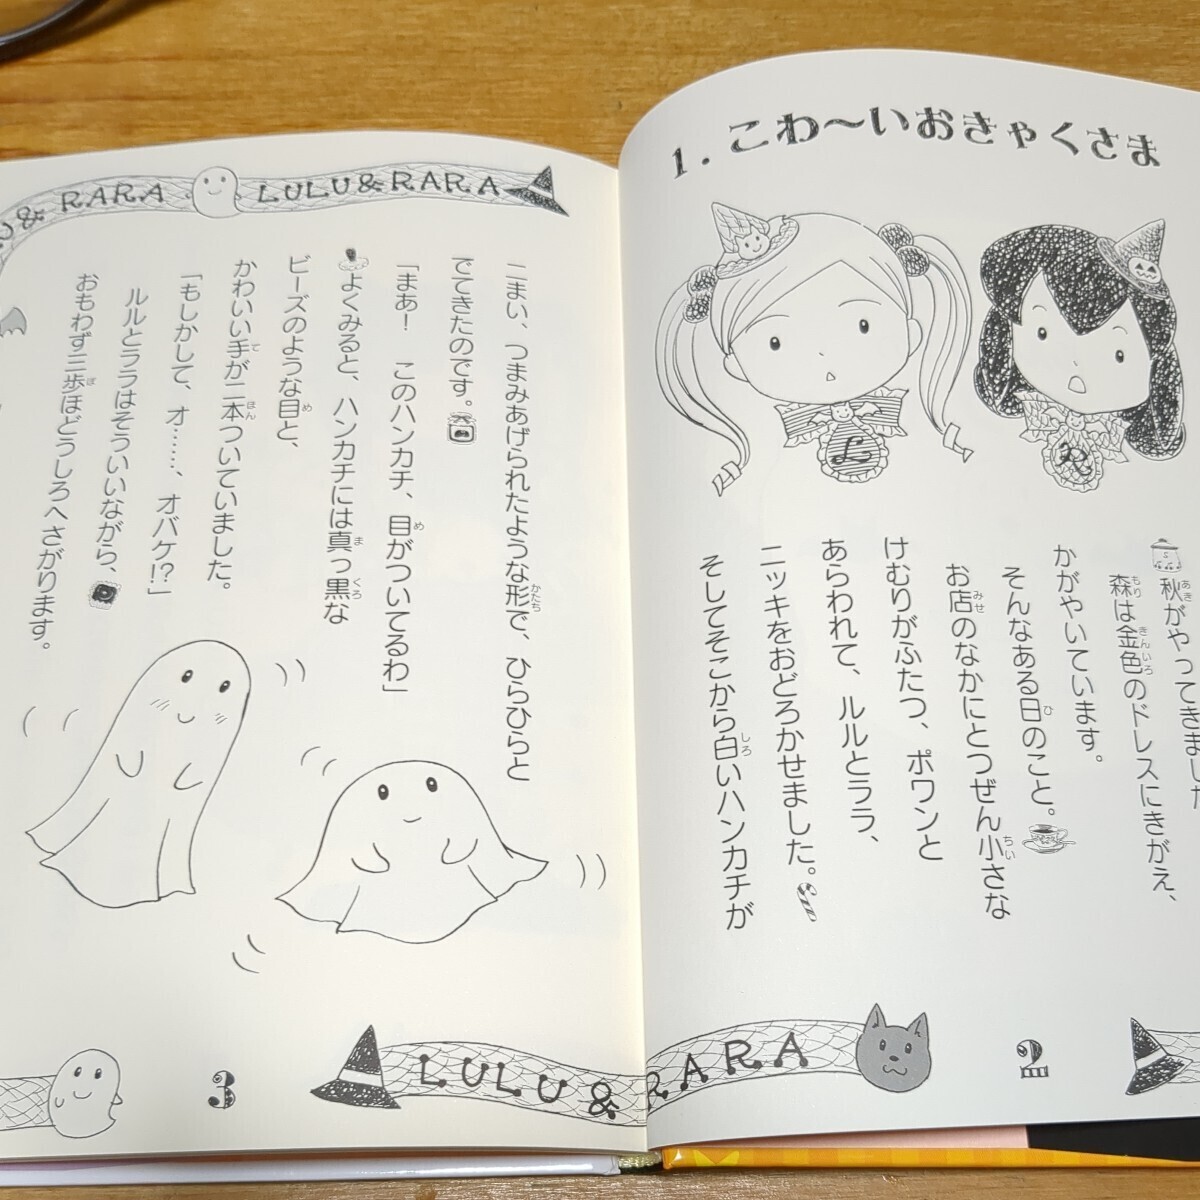 1.こわ〜いおきゃくさま
L
R
秋がやってきました
森は金色のドレスにきがえ、
かがやいています。
そんなある日のこと。
お店のなかにとつぜん小さな
けむりがふたつ、ポワンと
あらわれて、ルルとララ、
ニッキをおどろかせました。
そしてそこから白いハンカチが
RARA
2
U & RARA LULU & RARA
二まい、つまみあげられたような形で、ひらひらと
でてきたのです。
「まあ! このハンカチ、目がついてるわ」
よくみると、ハンカチには真っ黒な
ビーズのような目と、
かわいい手が二本ついていました。
「もしかして、オ……、オバケ!?」
ルルとララはそういいながら、
おもわず三歩ほどうしろへさがります。
3
LULU &